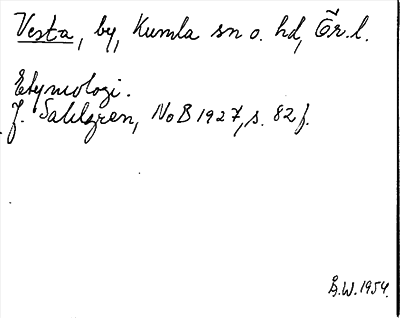 Vesta, by, Kumla sn o. hd, Ör. l.
Etymologi.
J. Sahlgren, NoB 1927, s. 82 f.
B.W. 1954.